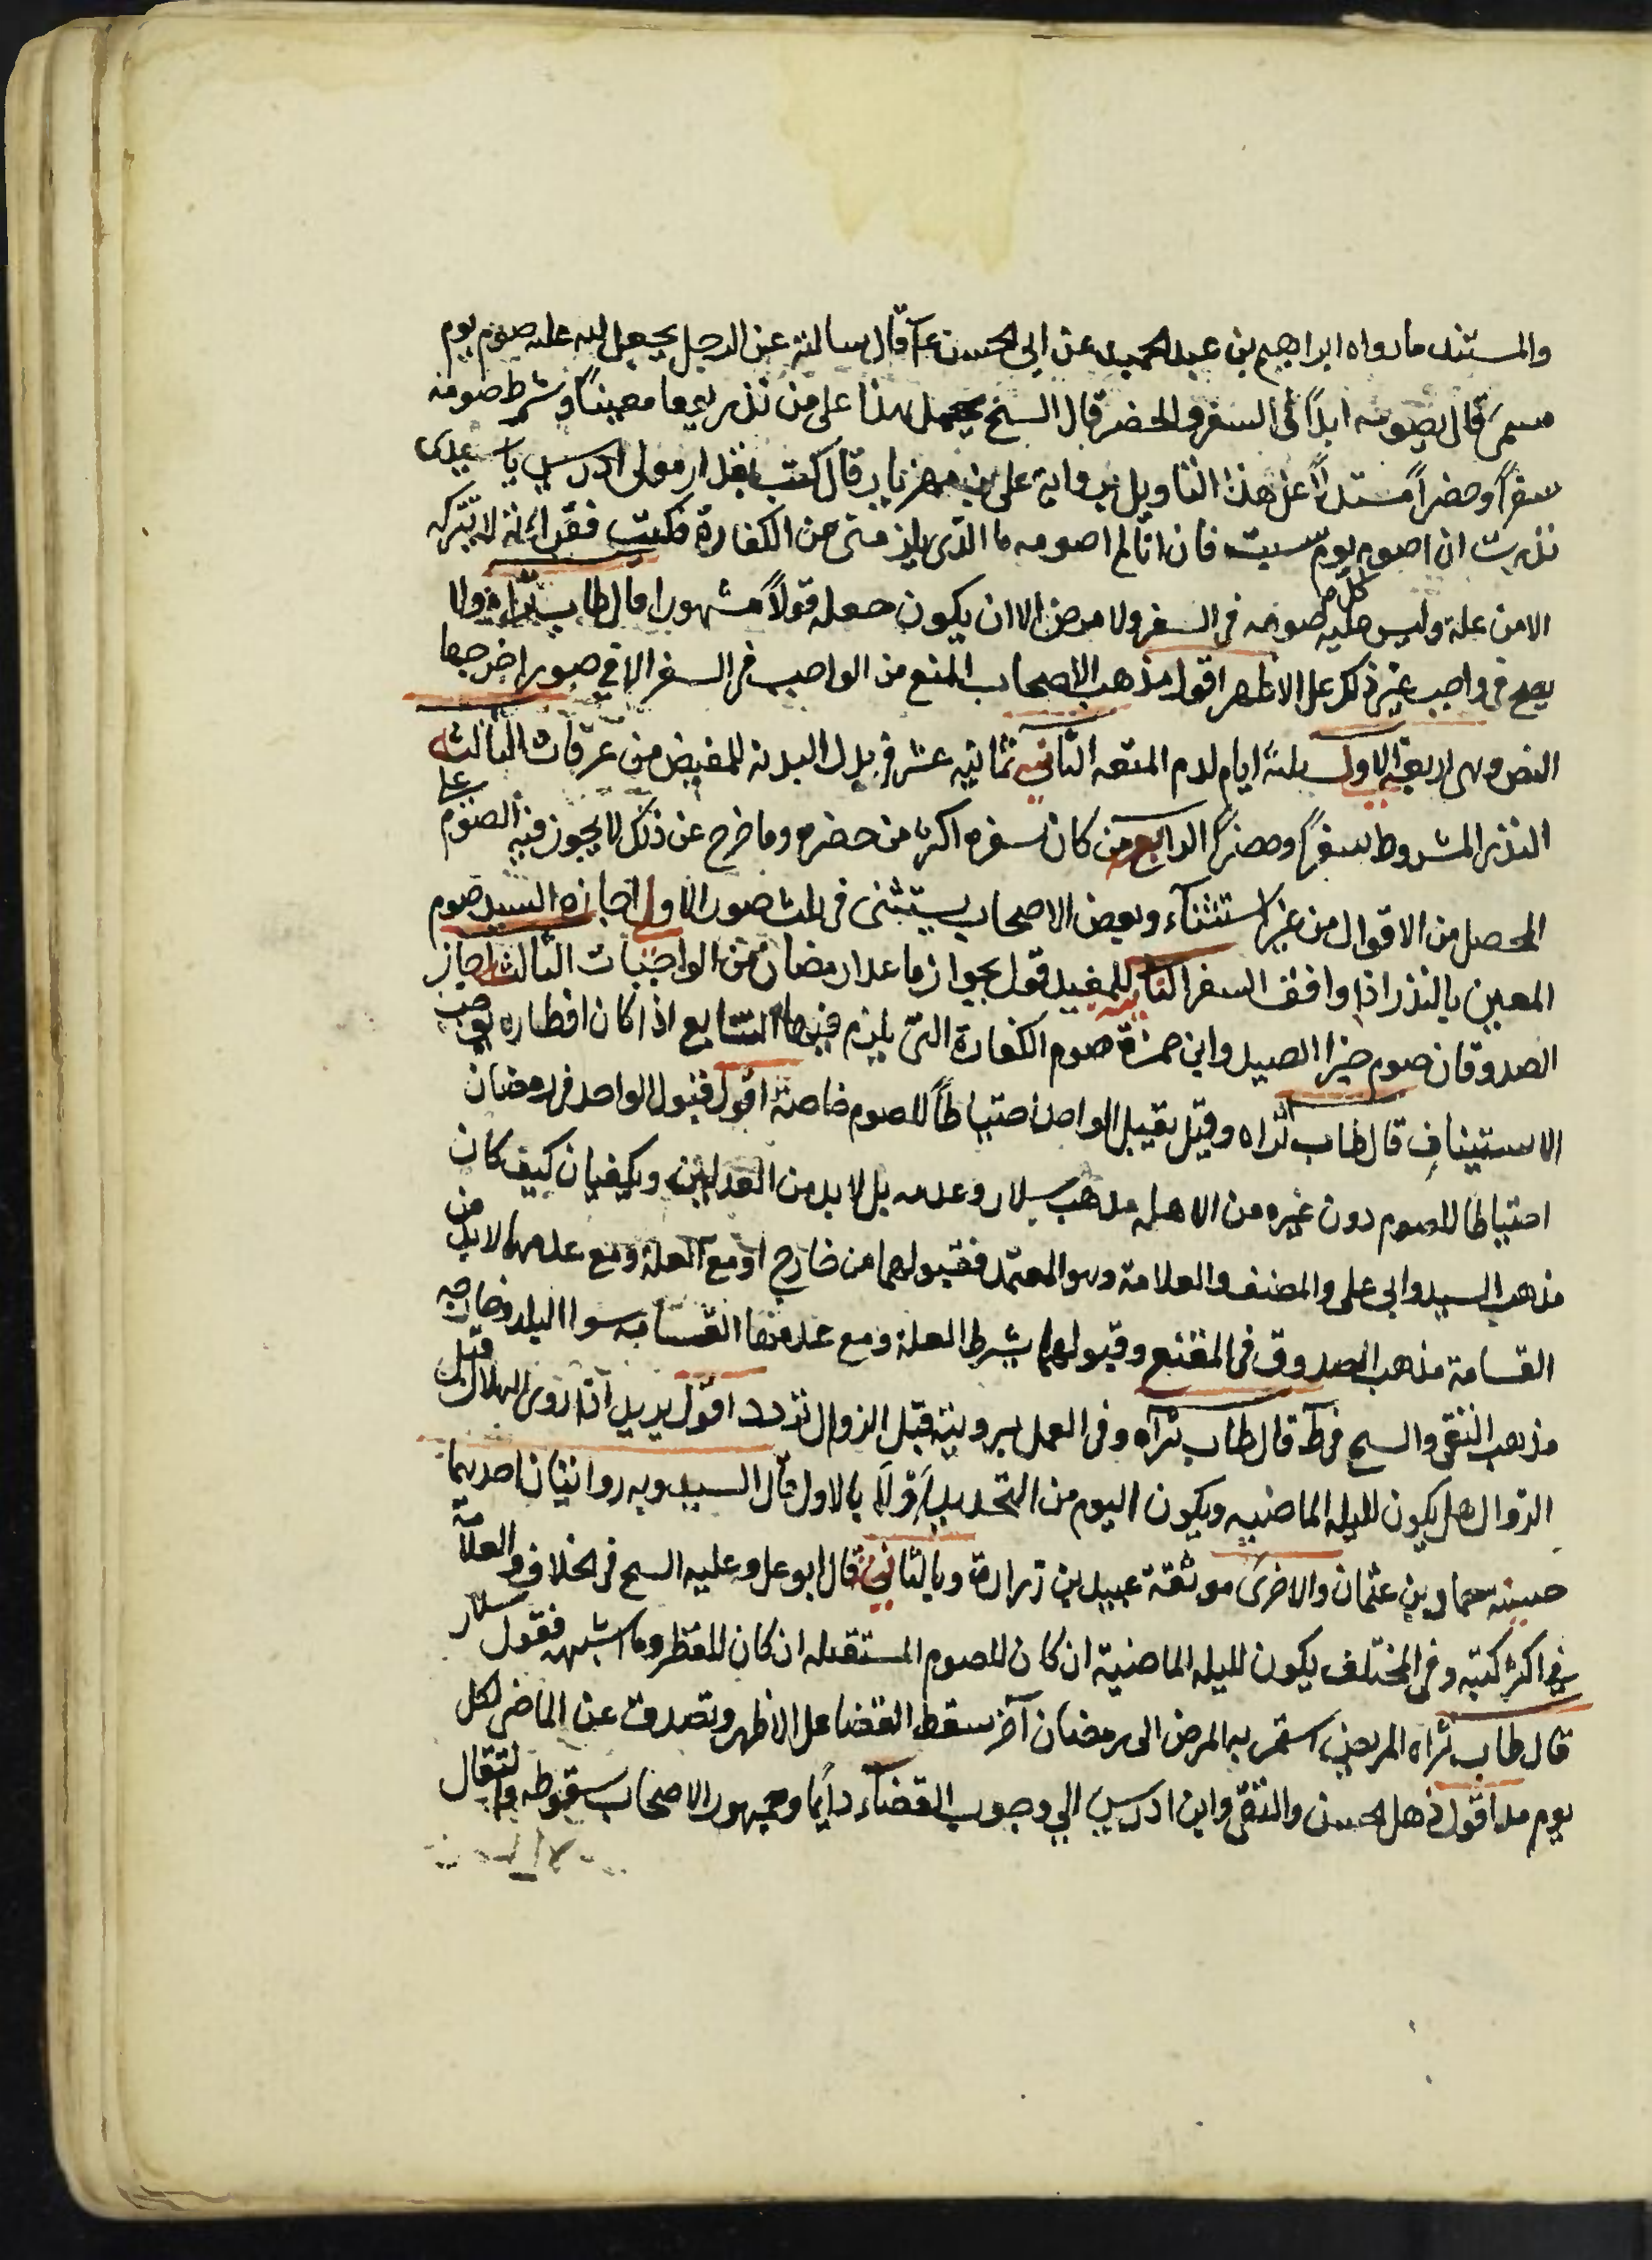 والمستند ما رواه ابراهيم بن عبد الحميد عن ابى الحسن ع قال سالته عن الرجل يجعل لله عليه صوم يوم
مسمى قال يصومه ابدا فى السفر والحضر قال الشيخ يحمل هذا على من نذر يوما معينا وشرط صومه
سفرا وحضرا مستدلا عن هذا التاويل برواية على بن مهزيار قال كتب بندار مولى ادريس يا سيدى
نذرت ان اصوم كل يوم سبت فان انا لم اصومه ما الذى يلزمنى من الكفارة فكتب فقراته لا تتركه
الا من علة وليس عليه صومه فى السفر ولا مرض الا ان يكون جعله قولا مشهورا قال طاب ثراه ولا
يصح فى واجب غير ذلك على الاظهر اقول مذهب الاصحاب المنع من الواجب فى السفر الا فى صور اخرجها
النص وهى اربعة الاول ثلثة ايام لدم المتعه الثانيه ثمانيه عشر فى بدل البدنه للمفيض من عرفات الثالثه
النذر المشروط سفرا وحضرا الرابع من كان سفره اكثر من حضره وما خرج عن ذلك لا يجوز فيه الصوم على
المحصل من الاقوال من غير استثناء وبعض الاصحاب يستثنى فى ثلث صور الاول اجازه السيد صوم
المعين بالنذر اذا وافق السفر الثانيه للمفيد قول بجواز ما عدا رمضان من الواجبات الثالث اجاز
الصدوقان صوم جزا الصيد وابن حمزة صوم الكفارة التى يلزم فيها التتابع اذا كان افطاره يوجب
الاستيناف قال طاب ثراه وقيل يقبل الواحد احتياطا للصوم خاصة اقول قبول الواحد فى رمضان
احتياطا للصوم دون غيره من الاهله مذهب سلار وعدمه بل لا بد من العدلين ويكفيان كيف كان
مذهب السيد وابى على والمصنف والعلامة وهو المعتمد فقبولهما من خارج او مع العلة ومع عدمها لا بد من
القسامة مذهب الصدوق فى المقنع وقبولهما بشرط العلة ومع عدمها القسامه سوا البلد وخارجه
مذهب التقى والشيخ فى ط قال طاب ثراه وفى العمل برويته قبل الزوال تردد اقول يريد اذا روى الهلال قبل
الزوال هل يكون لليله الماضيه ويكون اليوم من التحديد اولا بالاول قال السيد وبه روايتان احديهما
حسنه حماد بن عثمان والاخرى موثقة عبيد بن زرارة وبالثانى قال ابو على وعليه الشيخ فى الخلاف والعلامة
فى اكثر كتبه وفى المختلف يكون لليله الماضية ان كان للصوم المستقبله ان كان للفطر وما اشبهه فقول سلار
قال طاب ثراه المريض استمر به المرض الى رمضان آخر سقط القضا على الاظهر وتصدق عن الماضى لكل
يوم مد اقول ذهب الحسن والتقى وابن ادريس الى وجوب القضاء دايما وجمهور الاصحاب سقوطه وانتقال